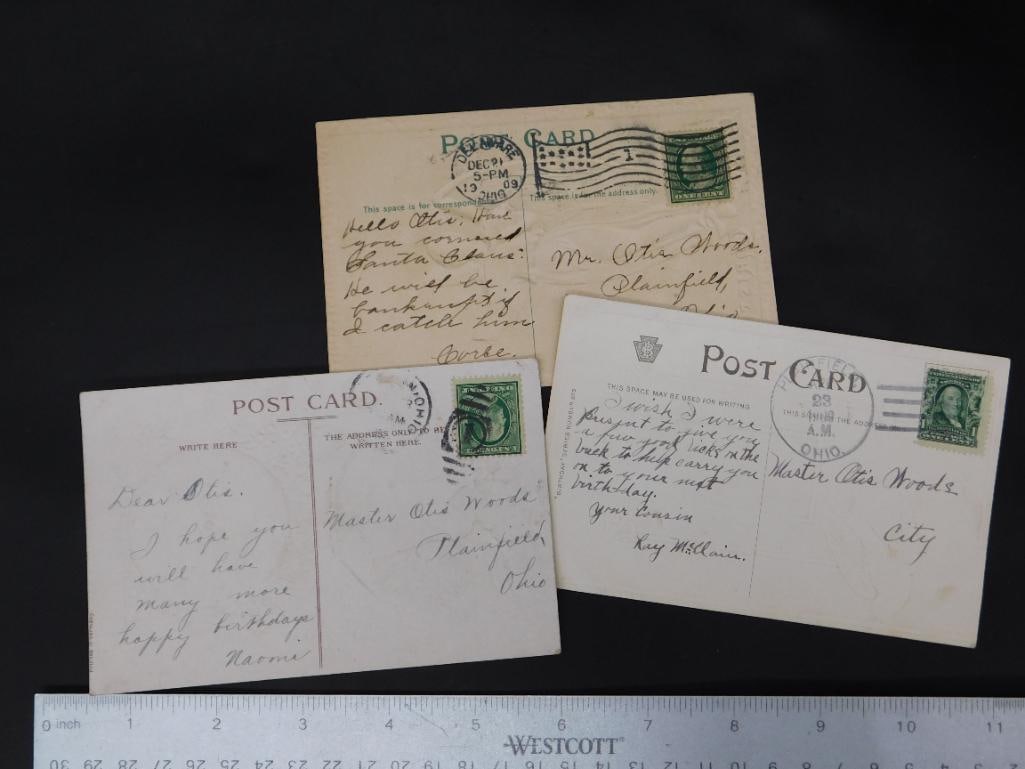 POST CARD
DELAWARE
DEC 21
5-PM
1909
OHIO
1
This space is for correspond
This space is for the address only.
Hello Otis; Have
you cornered
Santa Claus?
He will be
bankrupt if
I catch him
Corbe.
Mr. Otis Woods,
Plainfield,
Ohio
POST CARD
THIS SPACE MAY BE USED FOR WRITING
THIS SPACE FOR THE ADDRESS
23
A.M.
OHIO.
"BIRTHDAY" SERIES NUMBER
I wish I were
present to give you
a few good licks on the
back to help carry you
on to your next
birthday.
Your Cousin
Ray McClain.
Master Otis Woods
City
POST CARD.
OHIO
WRITE HERE
THE ADDRESS ONLY TO BE
WRITTEN HERE.
Dear Otis.
I hope you
will have
many more
happy birthdays
Naomi
Master Otis Woods
Plainfield,
Ohio
0 inch 1 2 3 4 5 6 7 8 9 10 11
WESTCOTT
30 29 28 27 26 25 24 23 22 21 20 19 18 17 16 15 14 13 12 11 10 9 8 7 6 5 4 3 2